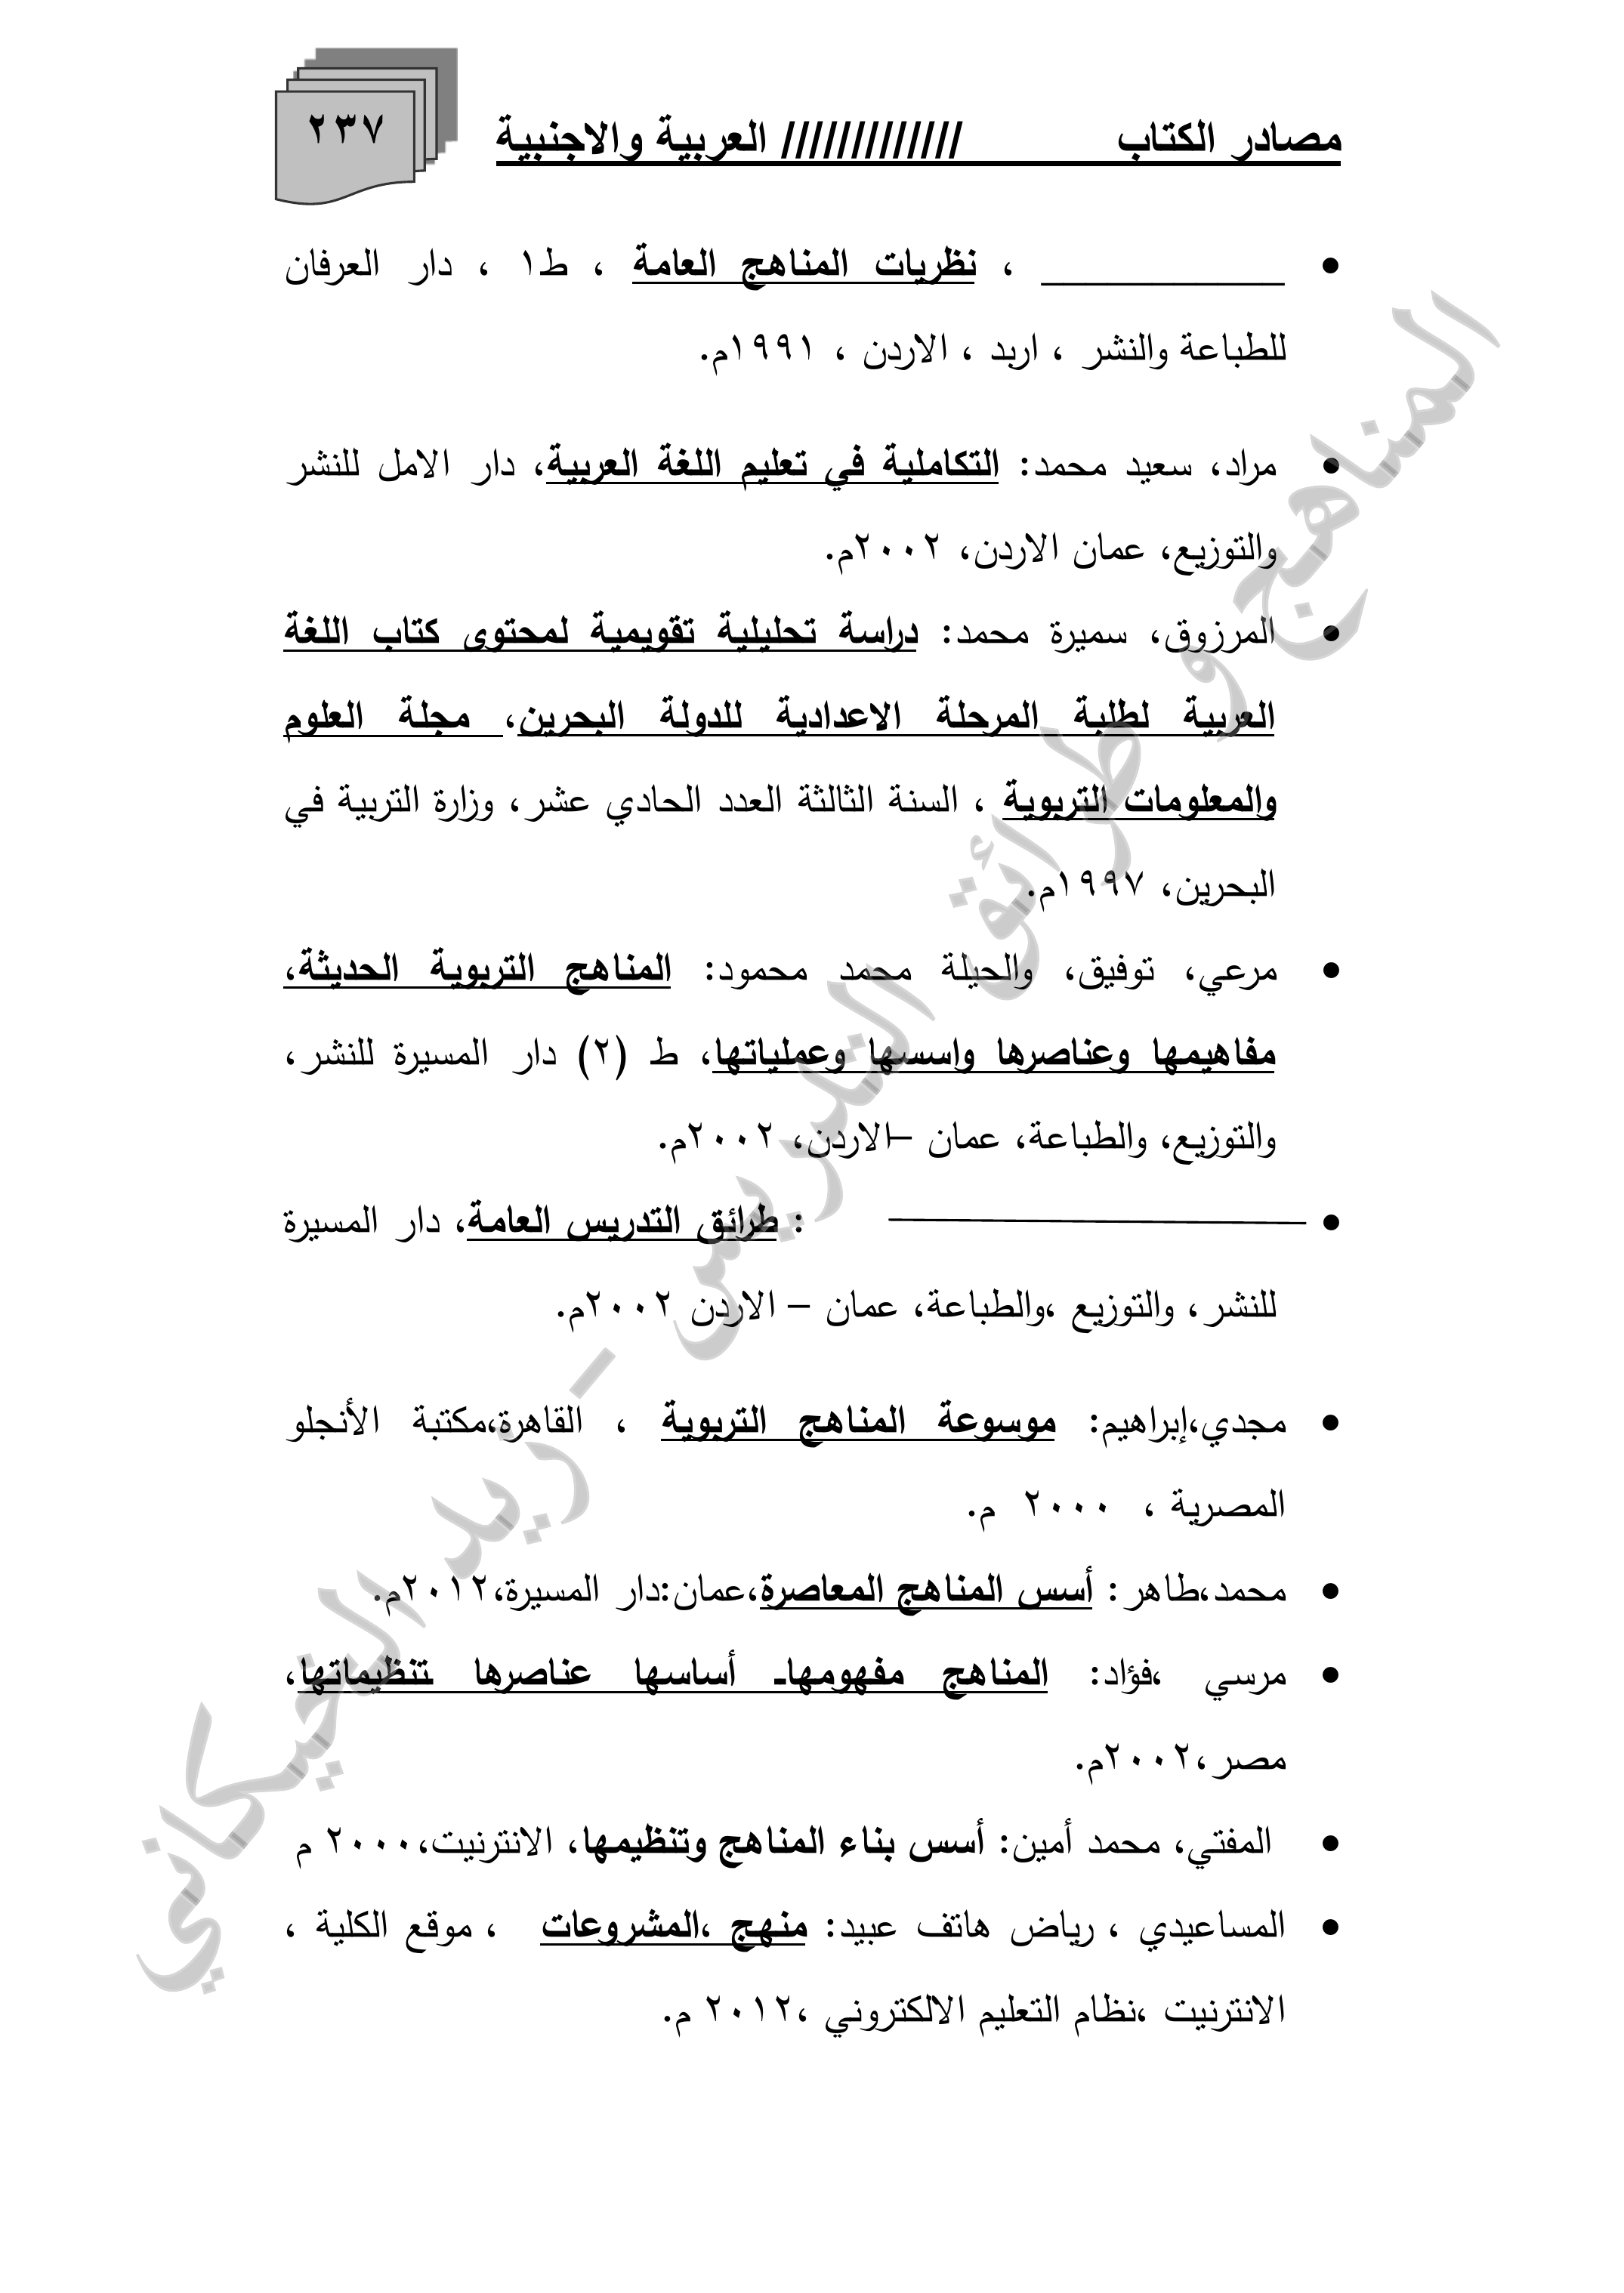 مصادر الكتاب ///////////// العربية والاجنبية
٢٣٧
• ___________ ، نظريات المناهج العامة ، ط١ ، دار العرفان
للطباعة والنشر ، اربد ، الاردن ، ١٩٩١م.
• مراد، سعيد محمد: التكاملية في تعليم اللغة العربية، دار الامل للنشر
والتوزيع، عمان الاردن، ٢٠٠٢م.
• المرزوق، سميرة محمد: دراسة تحليلية تقويمية لمحتوى كتاب اللغة
العربية لطلبة المرحلة الاعدادية للدولة البحرين، مجلة العلوم
والمعلومات التربوية ، السنة الثالثة العدد الحادي عشر، وزارة التربية في
البحرين، ١٩٩٧م.
• مرعي، توفيق، والحيلة محمد محمود: المناهج التربوية الحديثة،
مفاهيمها وعناصرها واسسها وعملياتها، ط (٢) دار المسيرة للنشر،
والتوزيع، والطباعة، عمان –الاردن، ٢٠٠٢م.
• : طرائق التدريس العامة، دار المسيرة
للنشر، والتوزيع ،والطباعة، عمان – الاردن ٢٠٠٢م.
• مجدي،إبراهيم: موسوعة المناهج التربوية ، القاهرة،مكتبة الأنجلو
المصرية ، ٢٠٠٠ م.
• محمد،طاهر: أسس المناهج المعاصرة،عمان:دار المسيرة،٢٠١٢م.
• مرسي ،فؤاد: المناهج مفهومهاـ أساسها عناصرها ـتنظيماتها،
مصر،٢٠٠٢م.
• المفتي، محمد أمين: أسس بناء المناهج وتنظيمها، الانترنيت،٢٠٠٠ م
• المساعيدي ، رياض هاتف عبيد: منهج ،المشروعات ، موقع الكلية ،
الانترنيت ،نظام التعليم الالكتروني ،٢٠١٢ م.
المناهج و طرائق التدريس - زيد الخيكاني